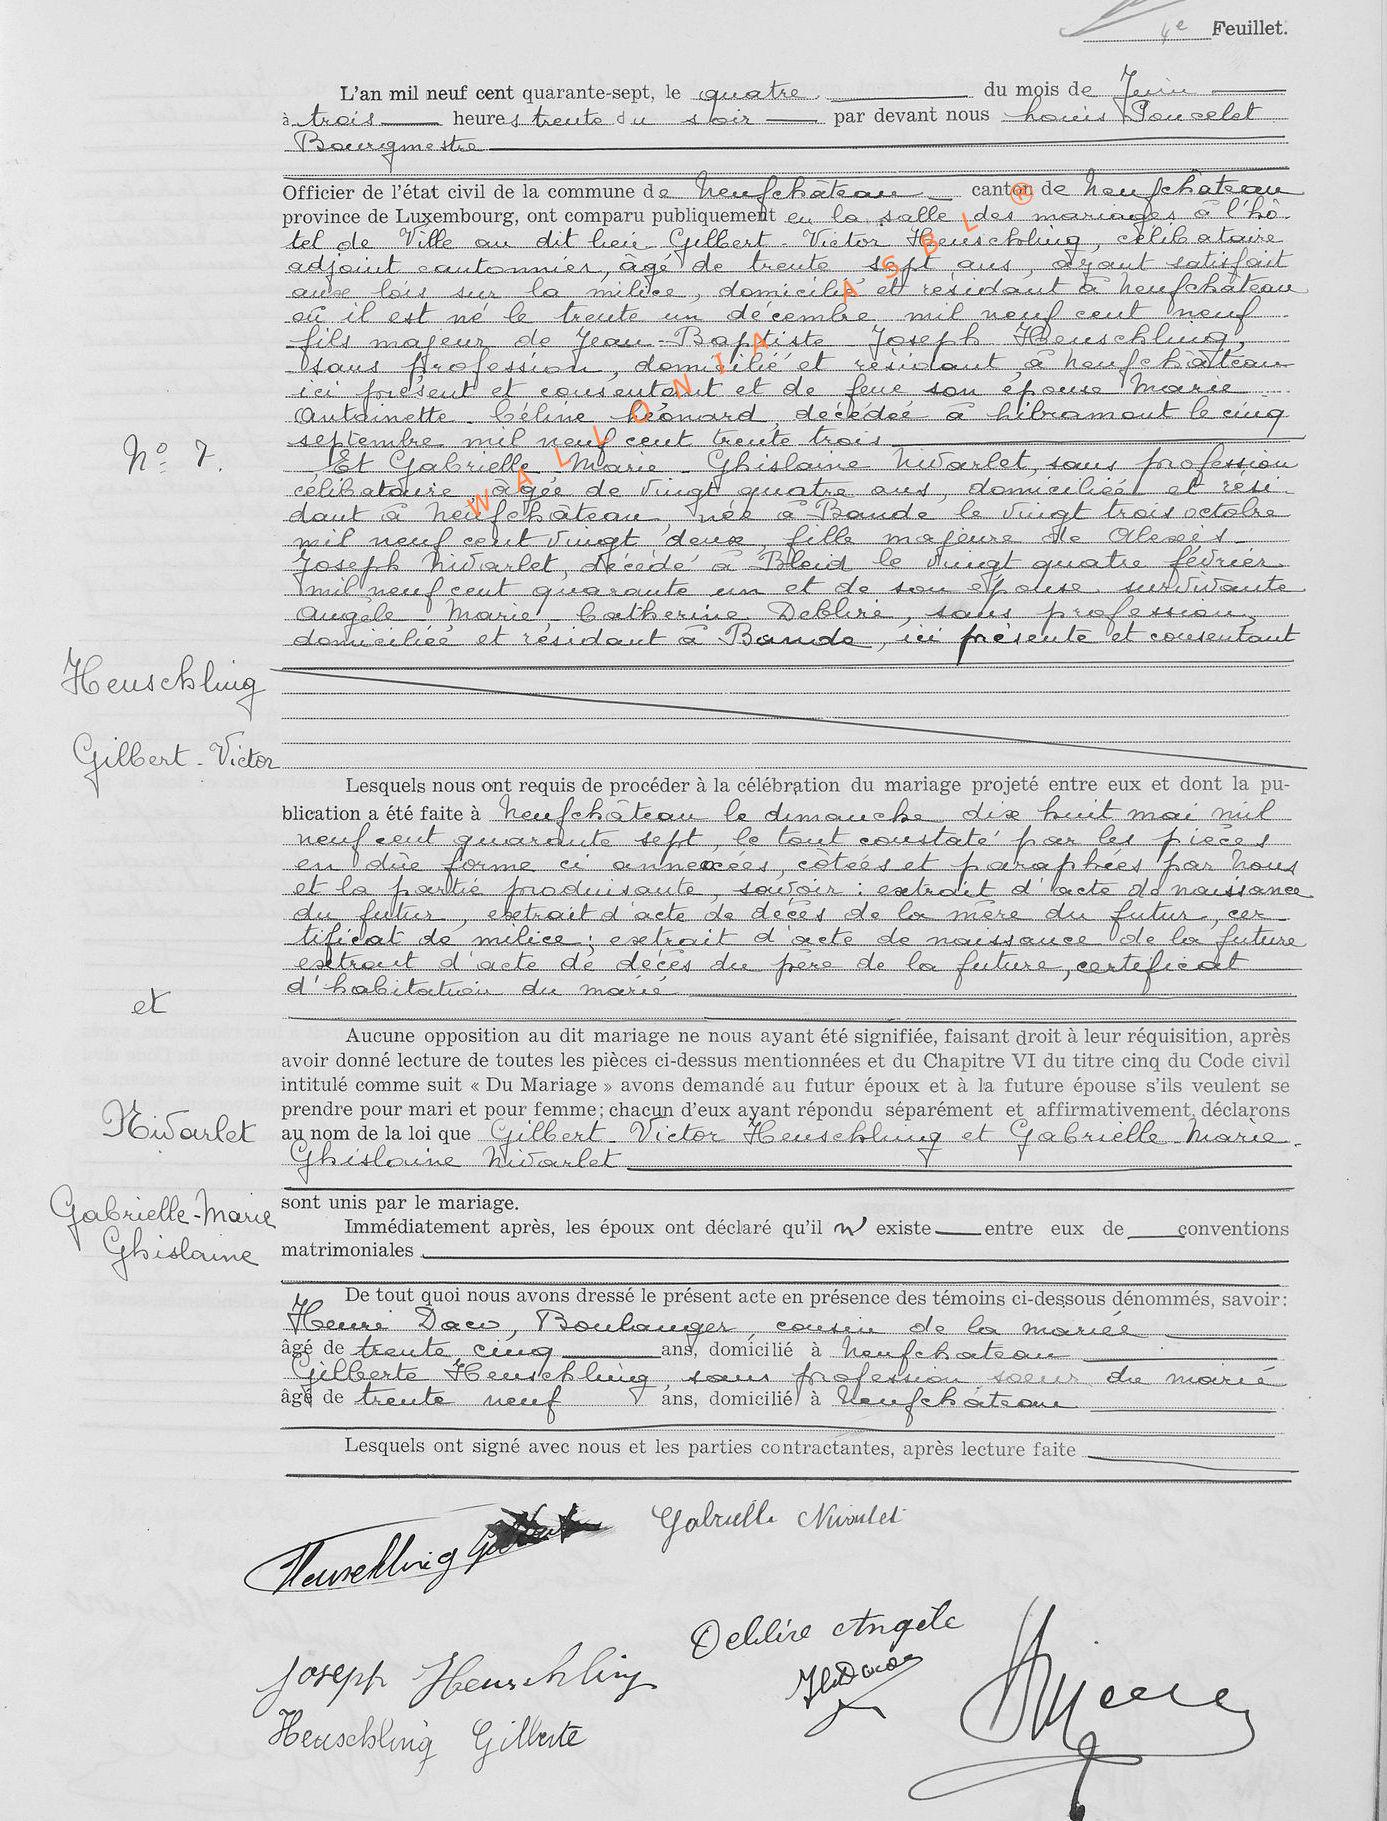 4e Feuillet.
L'an mil neuf cent quarante-sept, le quatre du mois de Juin
à trois heures trente du soir par devant nous Louis Poncelet
Bourgmestre
Officier de l'état civil de la commune de Neufchâteau canton de Neufchâteau
province de Luxembourg, ont comparu publiquement en la salle des mariages à l'hô-
tel de Ville au dit lieu Gilbert-Victor Heuschling, célibataire
adjoint cantonnier, âgé de trente sept ans, ayant satisfait
aux lois sur la milice, domicilié et résidant à Neufchâteau
où il est né le trente un décembre mil neuf cent neuf
fils majeur de Jean-Baptiste Joseph Heuschling,
sans profession, domicilié et résidant à Neufchâteau
ici présent et consentant et de feue son épouse Marie
Antoinette Céline Léonard, décédée à Libramont le cinq
septembre mil neuf cent trente trois
No 7.
Et Gabrielle-Marie-Ghislaine Nivarlet, sans profession
célibataire, âgée de vingt quatre ans, domiciliée et rési-
dant à Neufchâteau, née à Bande le vingt trois octobre
mil neuf cent vingt deux, fille majeure de Alexis-
Joseph Nivarlet, décédé à Bleid le vingt quatre février
mil neuf cent quarante un et de son épouse survivante
Angèle Marie Catherine Deblire, sans profession,
domiciliée et résidant à Bande, ici présente et consentant
Heuschling
Gilbert-Victor
Lesquels nous ont requis de procéder à la célébration du mariage projeté entre eux et dont la pu-
blication a été faite à Neufchâteau le dimanche dix huit mai mil
neuf cent quarante sept, le tout constaté par les pièces
en due forme ci annexées, côtées et paraphées par nous
et la partie produisante, savoir : extrait d'acte de naissance
du futur, extrait d'acte de décès de la mère du futur, cer-
tificat de milice; extrait d'acte de naissance de la future
extrait d'acte de décès du père de la future, certificat
d'habitation du marié
et
Aucune opposition au dit mariage ne nous ayant été signifiée, faisant droit à leur réquisition, après
avoir donné lecture de toutes les pièces ci-dessus mentionnées et du Chapitre VI du titre cinq du Code civil
intitulé comme suit « Du Mariage » avons demandé au futur époux et à la future épouse s'ils veulent se
prendre pour mari et pour femme; chacun d'eux ayant répondu séparément et affirmativement, déclarons
Nivarlet
au nom de la loi que Gilbert-Victor Heuschling et Gabrielle-Marie-
Ghislaine Nivarlet
sont unis par le mariage.
Gabrielle-Marie
Ghislaine
Immédiatement après, les époux ont déclaré qu'il n'existe entre eux de conventions
matrimoniales
De tout quoi nous avons dressé le présent acte en présence des témoins ci-dessous dénommés, savoir:
Henri Daco, Boulanger, cousin de la mariée
âgé de trente cinq ans, domicilié à Neufchateau
Gilberte Heuschling sans profession soeur du marié
âgé de trente neuf ans, domicilié à Neufchâteau
Lesquels ont signé avec nous et les parties contractantes, après lecture faite
Heuschling Gilbert
Gabrielle Nivarlet
Deblire Angèle
Joseph Heuschling
Heuschling Gilberte
WALLONIA ASBL ®